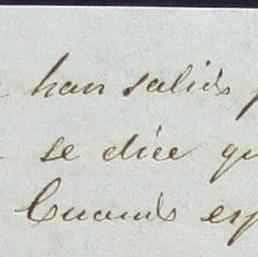 han salido
se dice qu
Cuando esp